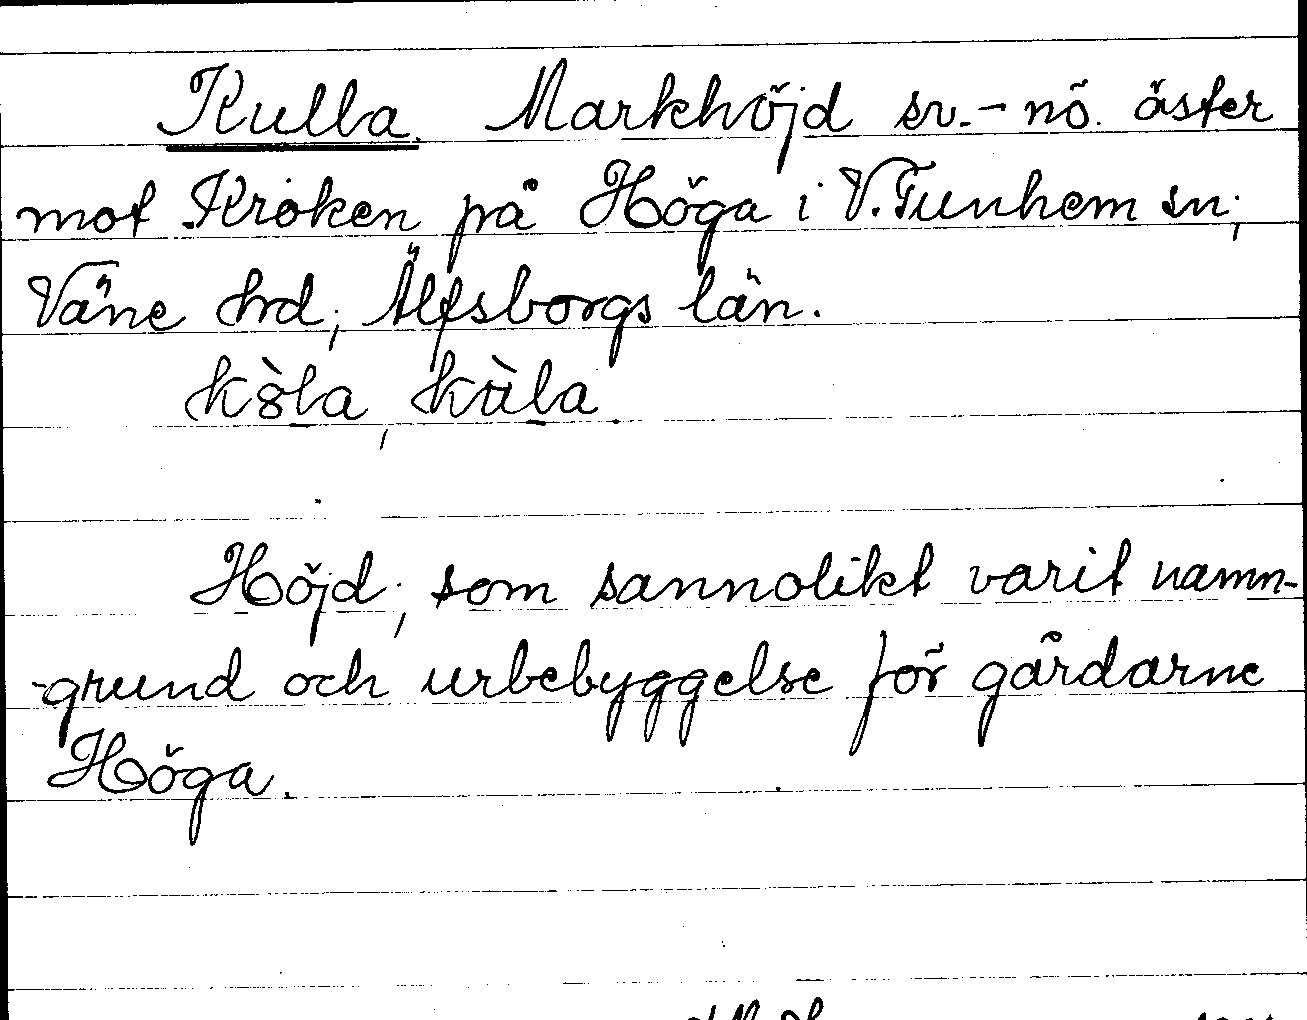 Kulla. Markhöjd sv.-nö. öster
mot Kroken på Höga i V.Tunhem sn,
Väne hrd, Älfsborgs län.
kòla, kùla
Höjd, som sannolikt varit namn-
-grund och urbebyggelse för gårdarne
Höga.